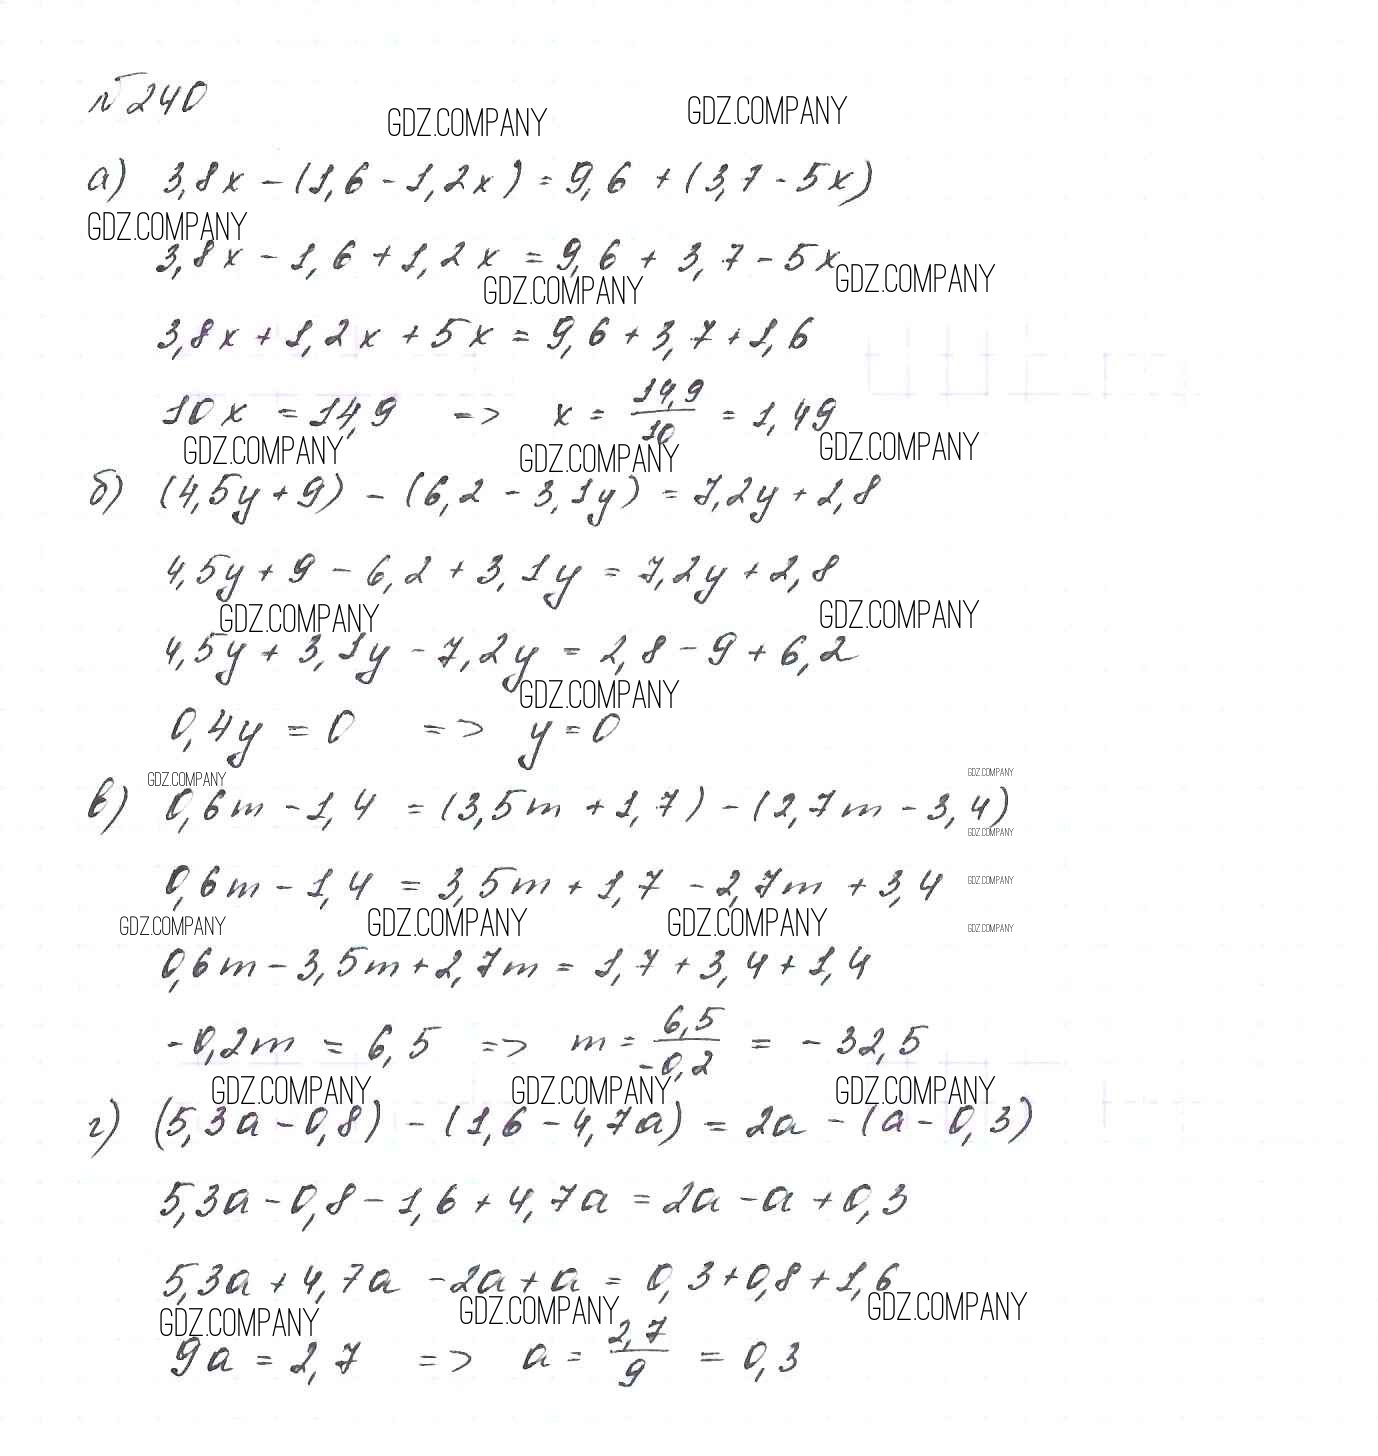 №240
GDZ.COMPANY GDZ.COMPANY
а) 3,8x - (1,6 - 1,2x) = 9,6 + (3,7 - 5x)
GDZ.COMPANY
3,8x - 1,6 + 1,2x = 9,6 + 3,7 - 5x
GDZ.COMPANY GDZ.COMPANY
3,8x + 1,2x + 5x = 9,6 + 3,7 + 1,6
10x = 14,9 => x = 14,9/10 = 1,49
GDZ.COMPANY GDZ.COMPANY GDZ.COMPANY
б) (4,5y + 9) - (6,2 - 3,1y) = 7,2y + 2,8
4,5y + 9 - 6,2 + 3,1y = 7,2y + 2,8
GDZ.COMPANY GDZ.COMPANY
4,5y + 3,1y - 7,2y = 2,8 - 9 + 6,2
GDZ.COMPANY
0,4y = 0 => y = 0
GDZ.COMPANY GDZ.COMPANY
в) 0,6m - 1,4 = (3,5m + 1,7) - (2,7m - 3,4)
GDZ.COMPANY
0,6m - 1,4 = 3,5m + 1,7 - 2,7m + 3,4
GDZ.COMPANY
GDZ.COMPANY GDZ.COMPANY GDZ.COMPANY GDZ.COMPANY
0,6m - 3,5m + 2,7m = 1,7 + 3,4 + 1,4
-0,2m = 6,5 => m = 6,5/-0,2 = -32,5
GDZ.COMPANY GDZ.COMPANY GDZ.COMPANY
г) (5,3a - 0,8) - (1,6 - 4,7a) = 2a - (a - 0,3)
5,3a - 0,8 - 1,6 + 4,7a = 2a - a + 0,3
5,3a + 4,7a - 2a + a = 0,3 + 0,8 + 1,6
GDZ.COMPANY GDZ.COMPANY GDZ.COMPANY
9a = 2,7 => a = 2,7/9 = 0,3